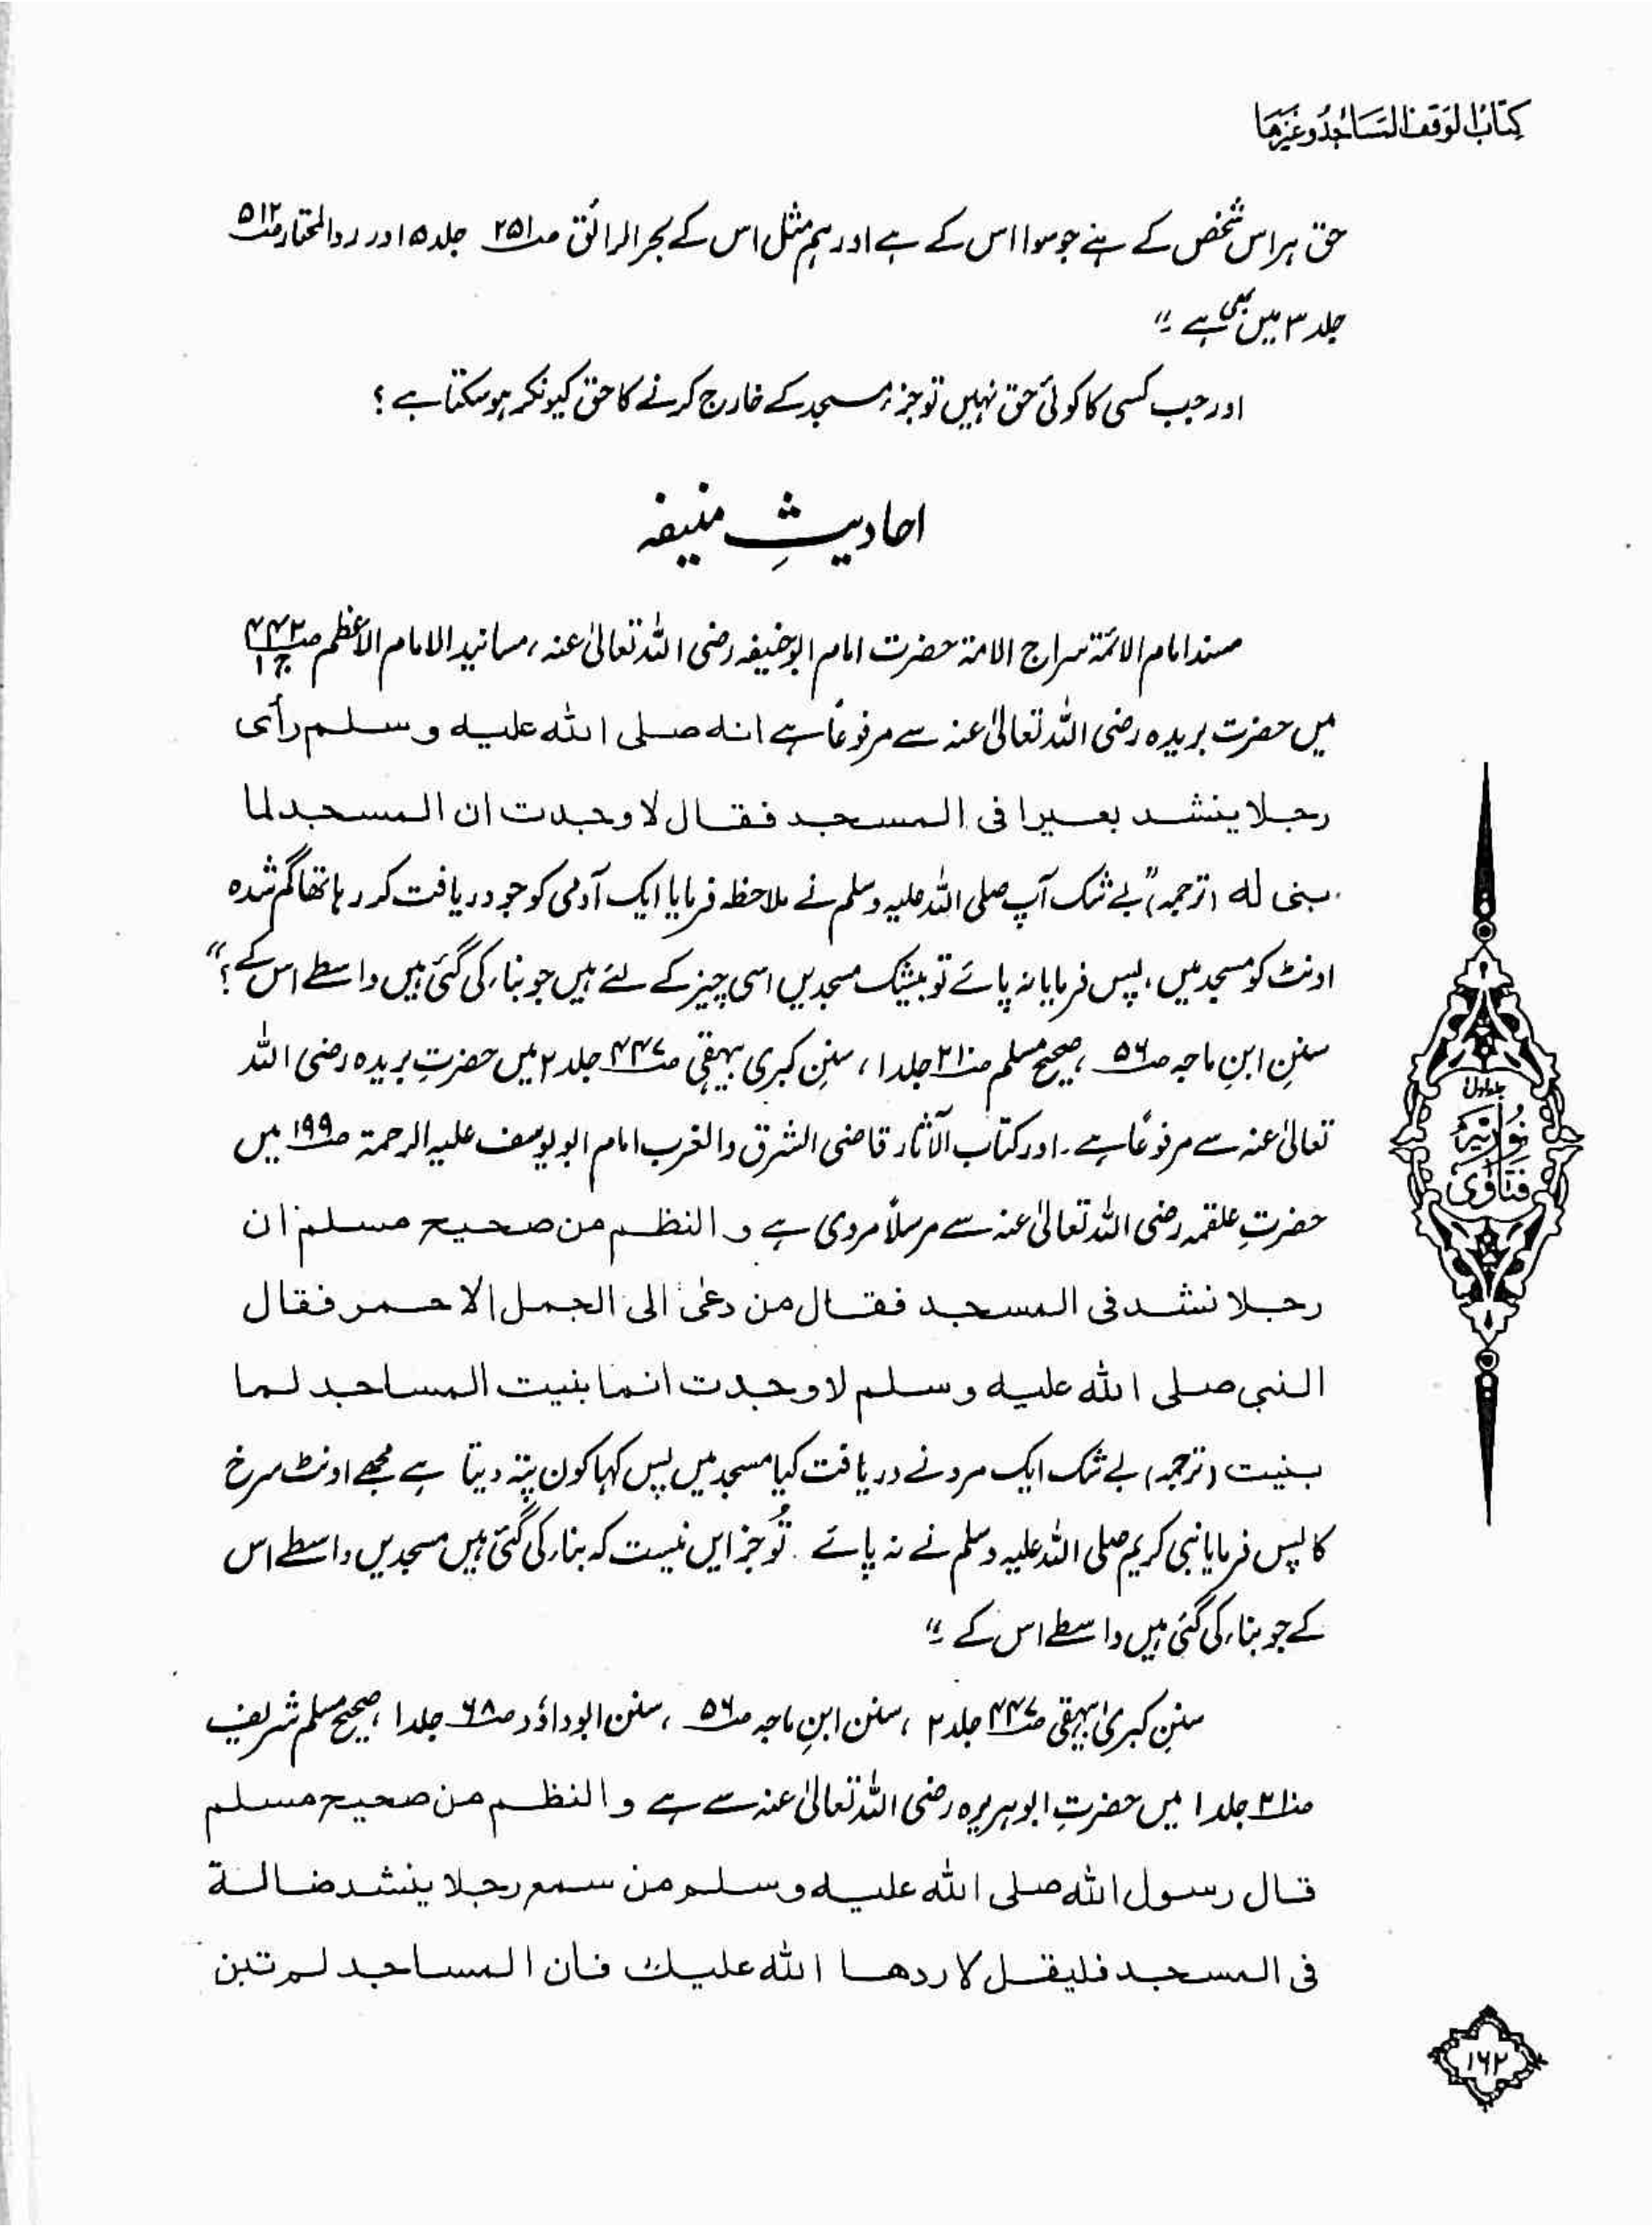 کتاب الوقف المساجد وغیرھا
حق ہر اس شخص کے ہنے جو سوا اس کے ہے اور ہم مثل اس کے بحر الرائق صـ۲۵۱ جلد ۵ اور ردالمحتار صـ۵۱۲
جلد ۳ میں بھی ہے ۔"
اور جب کسی کا کوئی حق نہیں تو جزءِ مسجد کے خارج کرنے کا حق کیونکر ہو سکتا ہے ؟
احادیثِ منیفہ
مسند امام الائمۃ سراج الامۃ حضرت امام ابوحنیفہ رضی اللہ تعالیٰ عنہ، مسانید الامام الاعظم صـ۴۴۲ ج ۱
میں حضرت بریدہ رضی اللہ تعالیٰ عنہ سے مرفوعاً ہے انه صلى الله عليه وسلم رأى
رجلا ينشد بعيرا فى المسجد فقال لا وجدت ان المسجد لما
بنى له (ترجمہ) "بے شک آپ صلی اللہ علیہ وسلم نے ملاحظہ فرمایا ایک آدمی کو جو دریافت کر رہا تھا گم شدہ
اونٹ کو مسجد میں، پس فرمایا نہ پائے تو بیشک مسجدیں اسی چیز کے لئے ہیں جو بناء کی گئی ہیں واسطے اس کے ؟"
سننِ ابنِ ماجہ صـ۵۶ ، صحیح مسلم صـ۲۱۰ جلد ۱ ، سننِ کبری بیہقی صـ۴۴۷ جلد ۲ میں حضرتِ بریدہ رضی اللہ
تعالیٰ عنہ سے مرفوعاً ہے ۔ اور کتاب الآثار قاضی الشرق والغرب امام ابو یوسف علیہ الرحمۃ صـ۱۹۹ میں
حضرتِ علقمہ رضی اللہ تعالیٰ عنہ سے مرسلاً مروی ہے و النظم من صحيح مسلم ان
رجلا نشد فى المسجد فقال من دعى الى الجمل الاحمر فقال
النبى صلى الله عليه وسلم لا وجدت انما بنيت المساجد لما
بنيت (ترجمہ) بے شک ایک مرد نے دریافت کیا مسجد میں پس کہا کون پتہ دیتا ہے مجھے اونٹ سرخ
کا پس فرمایا نبی کریم صلی اللہ علیہ وسلم نے نہ پائے تُو جز ایں نیست کہ بناء کی گئی ہیں مسجدیں واسطے اس
کے جو بناء کی گئی ہیں واسطے اس کے ۔"
سننِ کبریٰ بیہقی صـ۴۴۷ جلد ۲ ، سنن ابنِ ماجہ صـ۵۶ ، سنن ابوداؤد صـ۶۸ جلد ۱ ، صحیح مسلم شریف
صـ۲۱۰ جلد ۱ میں حضرتِ ابوہریرہ رضی اللہ تعالیٰ عنہ سے ہے و النظم من صحيح مسلم
قال رسول الله صلى الله عليه وسلم من سمع رجلا ينشد ضالة
فى المسجد فليقل لا ردها الله عليك فان المساجد لم تبن
جلد اول
نوریہ
فتاوی
۱۶۲